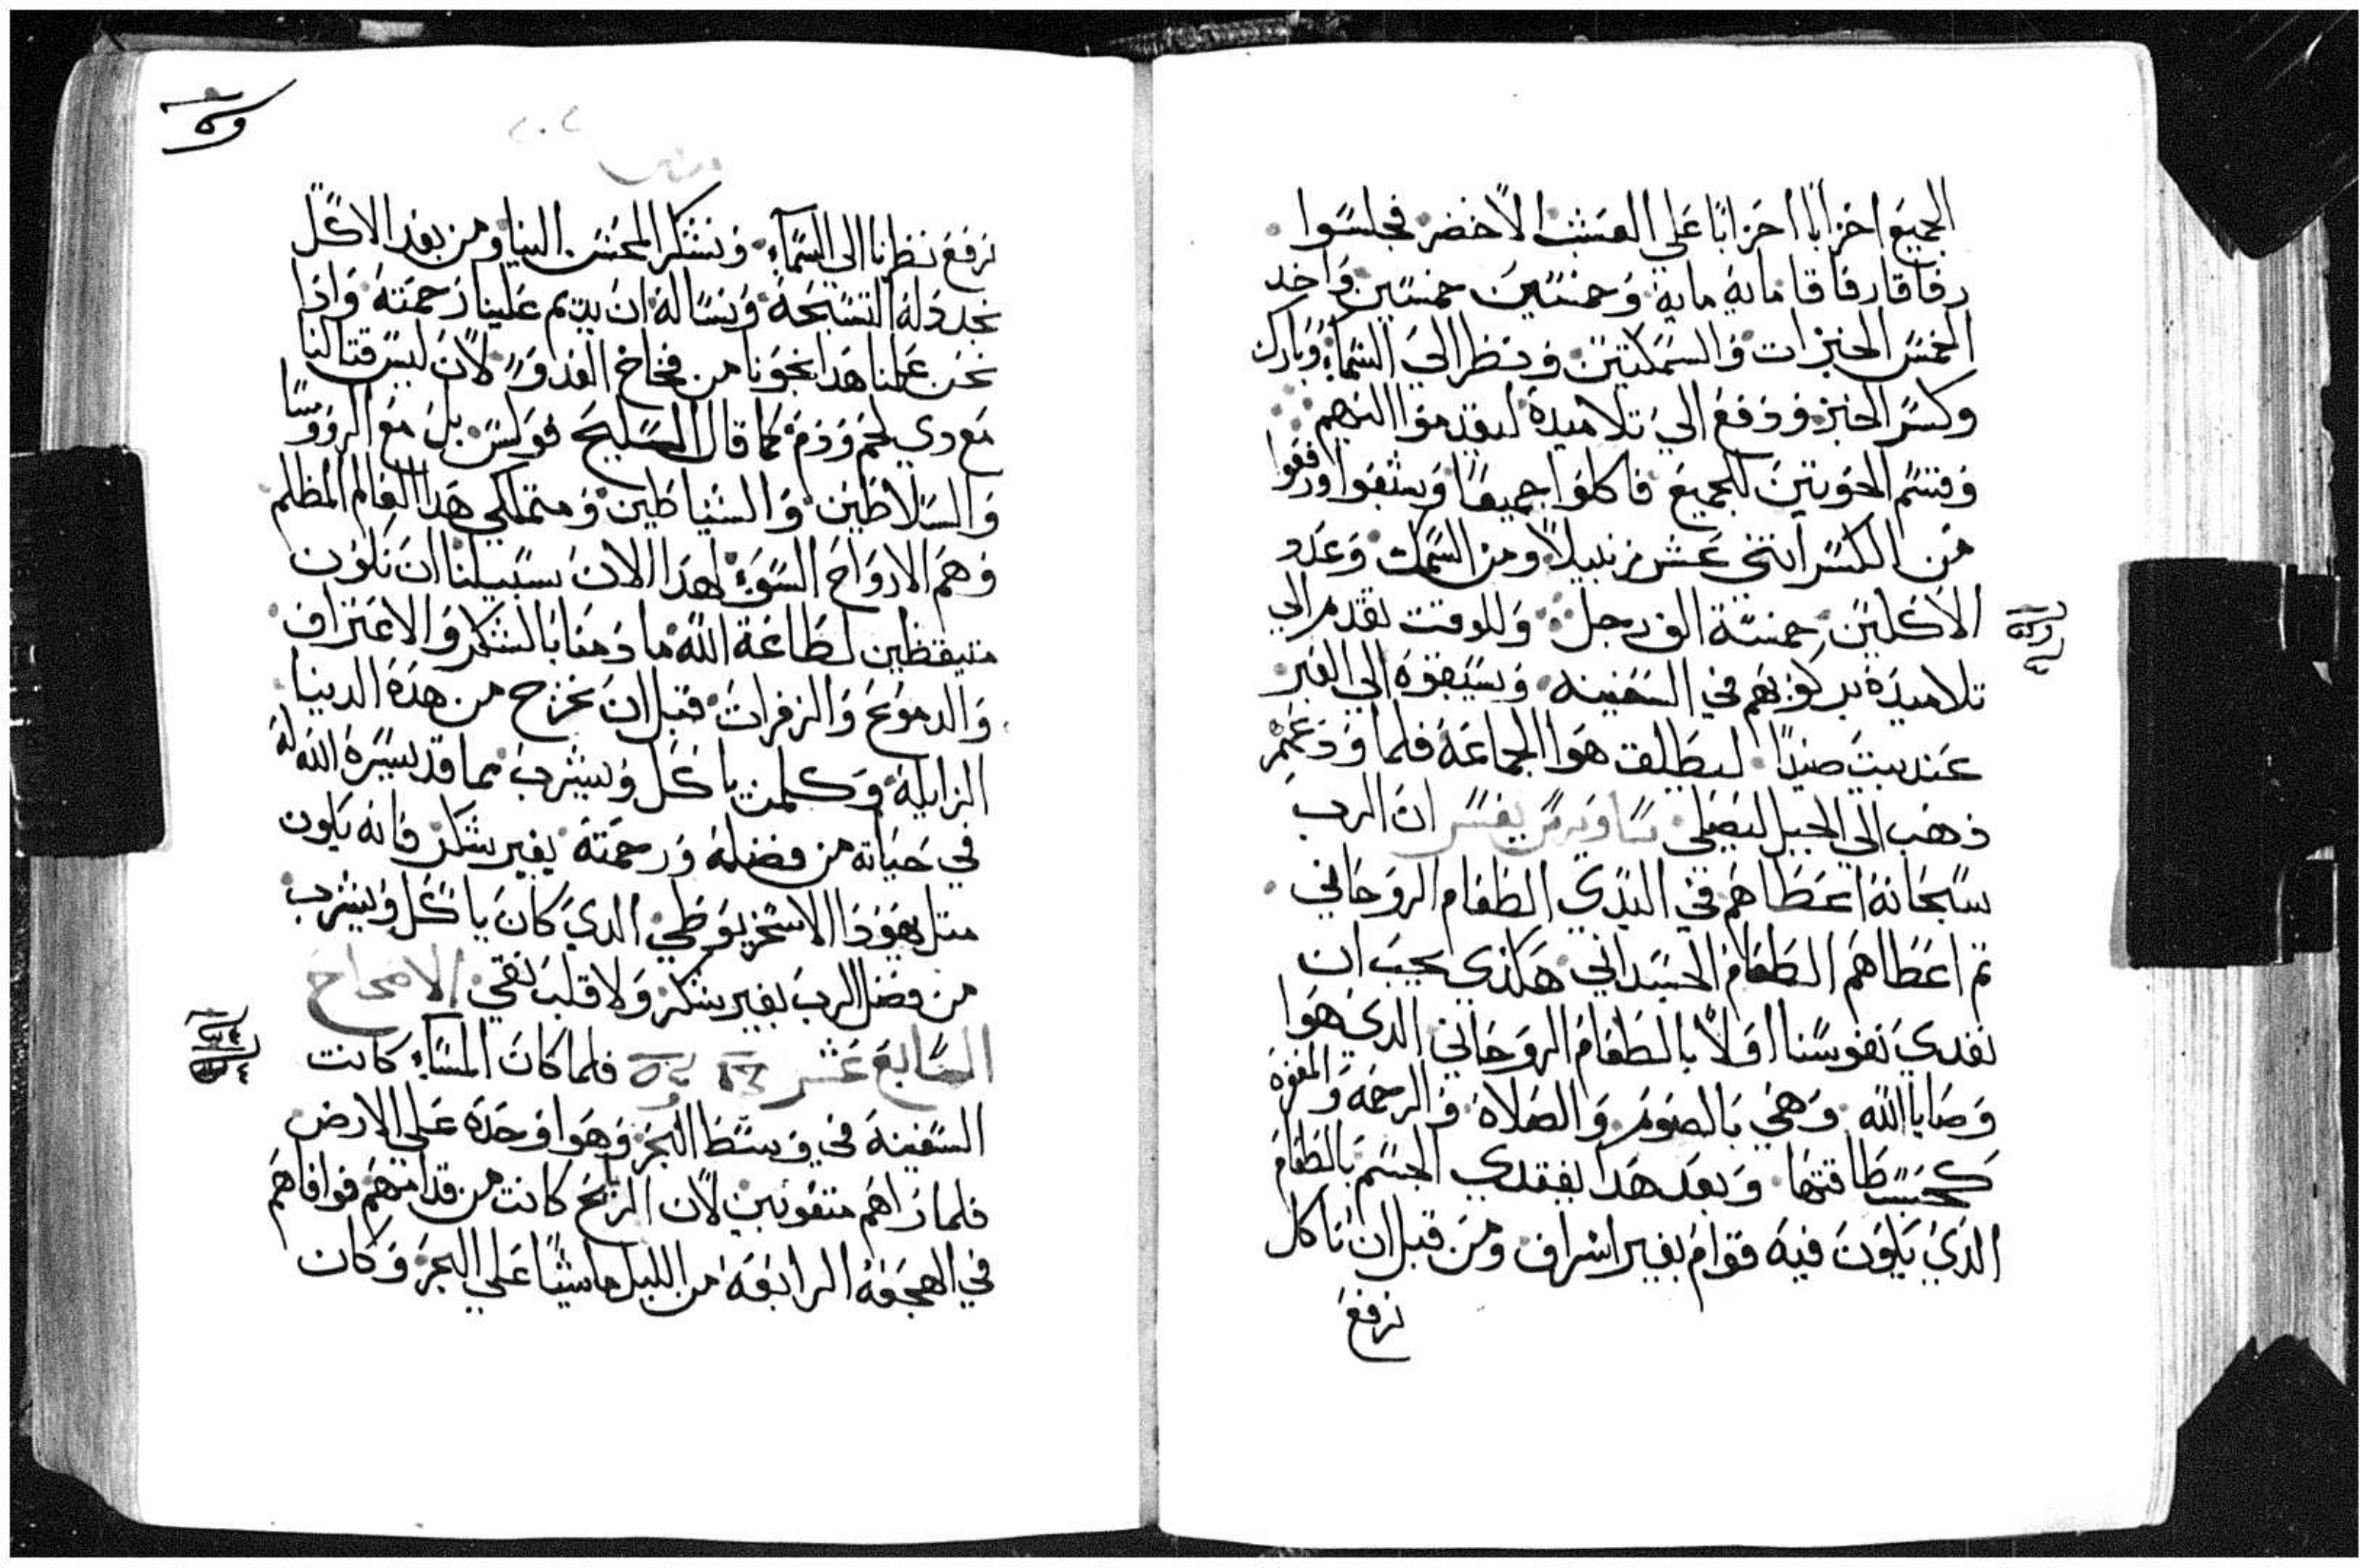 الجميع احزابًا احزابًا علي العشب الاخضر فجلسوا
رفاقا رفاقا مايه مايه وخمسين خمسين واخد
الخمس الخبزات والسمكتين ونظر الي السماء وبارك
وكسر الخبز ودفع الي تلاميده ليقدموا اليهم
وقسم الحوتين للجميع فاكلوا جميعًا وشبعوا ورفعوا
من الكسر اتني عشر زنبيلاً ومن السمك وعدد
الاكلين خمسة الف رجل وللوقت تقدم الي
تلاميده بركوبهم في السفينه ويسبقوه الي العبر
عند بيت صيدا ليطلق هوا الجماعه فلما ودعهم
ذهب الي الجبل ليصلي تفسير ان الرب
سبحانه اعطاهم في البدي الطعام الروحاني
تم اعطاهم الطعام الجسداني هكذي يجب ان
نغدي نفوسنا اولاً بالطعام الروحاني الدي هوا
وصايا الله وهي بالصوم والصلاة والرحمة والمغفره
كحسب طاقتها وبعد هدا يغتدي الجسم بالطعام
الذي يكون فيه قوام بغير اسراف ومن قبل ان ناكل
نرفع
نرفع نظرنا الي السماء ونشكر المحسن الينا ومن بعد الاكل
نجدد له التسبحة ونساله ان يديم علينا رحمته وادا
نحن عملنا هدا نجونا من فخاخ العدو لان ليس قتالنا
مع دي لحم ودم كما قال السليح بولس بل مع الرووسا
والسلاطين والشياطين ومتملكي هدا العالم المظلم
وهم الارواح السوء لهدا الان سبيلنا ان نكون
متيقظين لطاعة الله ما دمنا بالشكر والاعتراف
والدموع والزفرات قبل ان نخرج من هده الدينا
الزايلة وكلمن ياكل ويشرب مما قد يسره الله له
في حياته من فضله ورحمته بغير شكر فانه يكون
متل يهودا الاسخريوطي الدي كان ياكل ويشرب
من فضل الرب بغير شكر ولا قلب نقي الاصحاح
السابع عشر فلما كان المساء كانت
السفينة في وسط البحر وهوا وحده علي الارض
فلما راهم متعوبين لان الريح كانت من قدامهم فوافاهم
في الهجعة الرابعة من الليل ماشيًا علي البحر وكان